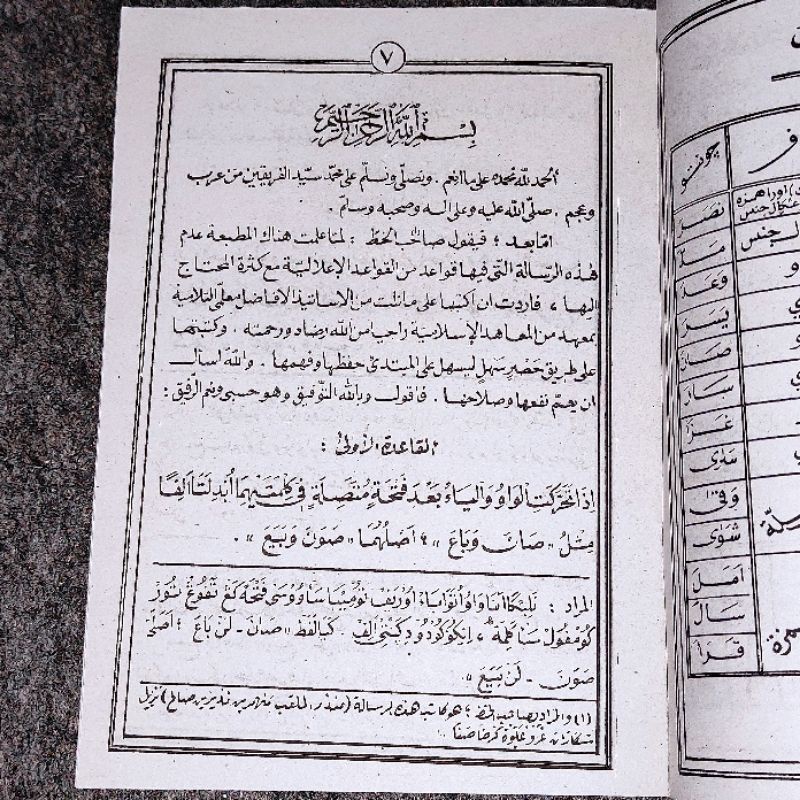 ٧
بسم الله الرحمن الرحيم
الحمد لله نحمده على ما انعم . ونصلّى ونسلّم على محمّد سيّد الفريقين من عرب
وعجم . صلّى الله عليه وعلى اله وصحبه وسلّم .
امّا بعد ؛ فيقول صاحب الخط : لمّا علمت هناك المطبعة عدم
هذه الرسالة التّى فيها قواعد من القواعد الإعلاليّة مع كثرة المحتاج
اليها ، فاردت ان اكتبها على ما نلت من الاساتيذ الافاضل معلّمى التلامية
بمعهد من المعاهد الإسلامية راجيا من الله رضاه ورحمته . وكتبتها
على طريق حصر سهل ليسهل على المبتدئ حفظها وفهمها . والله اسأل
ان يعمّ نفعها وصلاحها . فاقول وبالله التّوفيق وهو حسبى ونعم الرفيق :
القاعدة الأولى :
اِذَا تَحَرَّكَتِ الْوَاوُ وَالْيَاءُ بَعْدَ فَتْحَةٍ مُتَّصِلَةٍ فِى كَلِمَتَيْهِمَا أُبْدِلَتَا اَلِفًا
مِثْلُ « صَانَ وَبَاعَ » ؛ اَصْلُهُمَا « صَوَنَ وَبَيَعَ » .
المراد : نَلِيْكَا اَنَا وَاوُ اُتَوَا يَاءْ اوريف تومیبا ساوُوسَى فَتْحَه كَڠْ تَڤُوڠ تور
كومڤول سَاكلمة ، ڪيَا لفظ « صَانَ - لن بَاعَ » ؛ اَصَلَى
صَوَنَ - لن بَيَعَ » .
(١) والمراد بصاحب الخط ؛ هو كاتب هذه لرسالة ( منذر الملقب بن نذير بن صالح ) نزيل
چونتو
نَصَرَ
مَدَّ
وَعَدَ
يَسَرَ
صَانَ
سَارَ
غَزَا
سَرَى
وَقَى
شَوَى
اَمَلَ
سَأَلَ
قَرَأَ